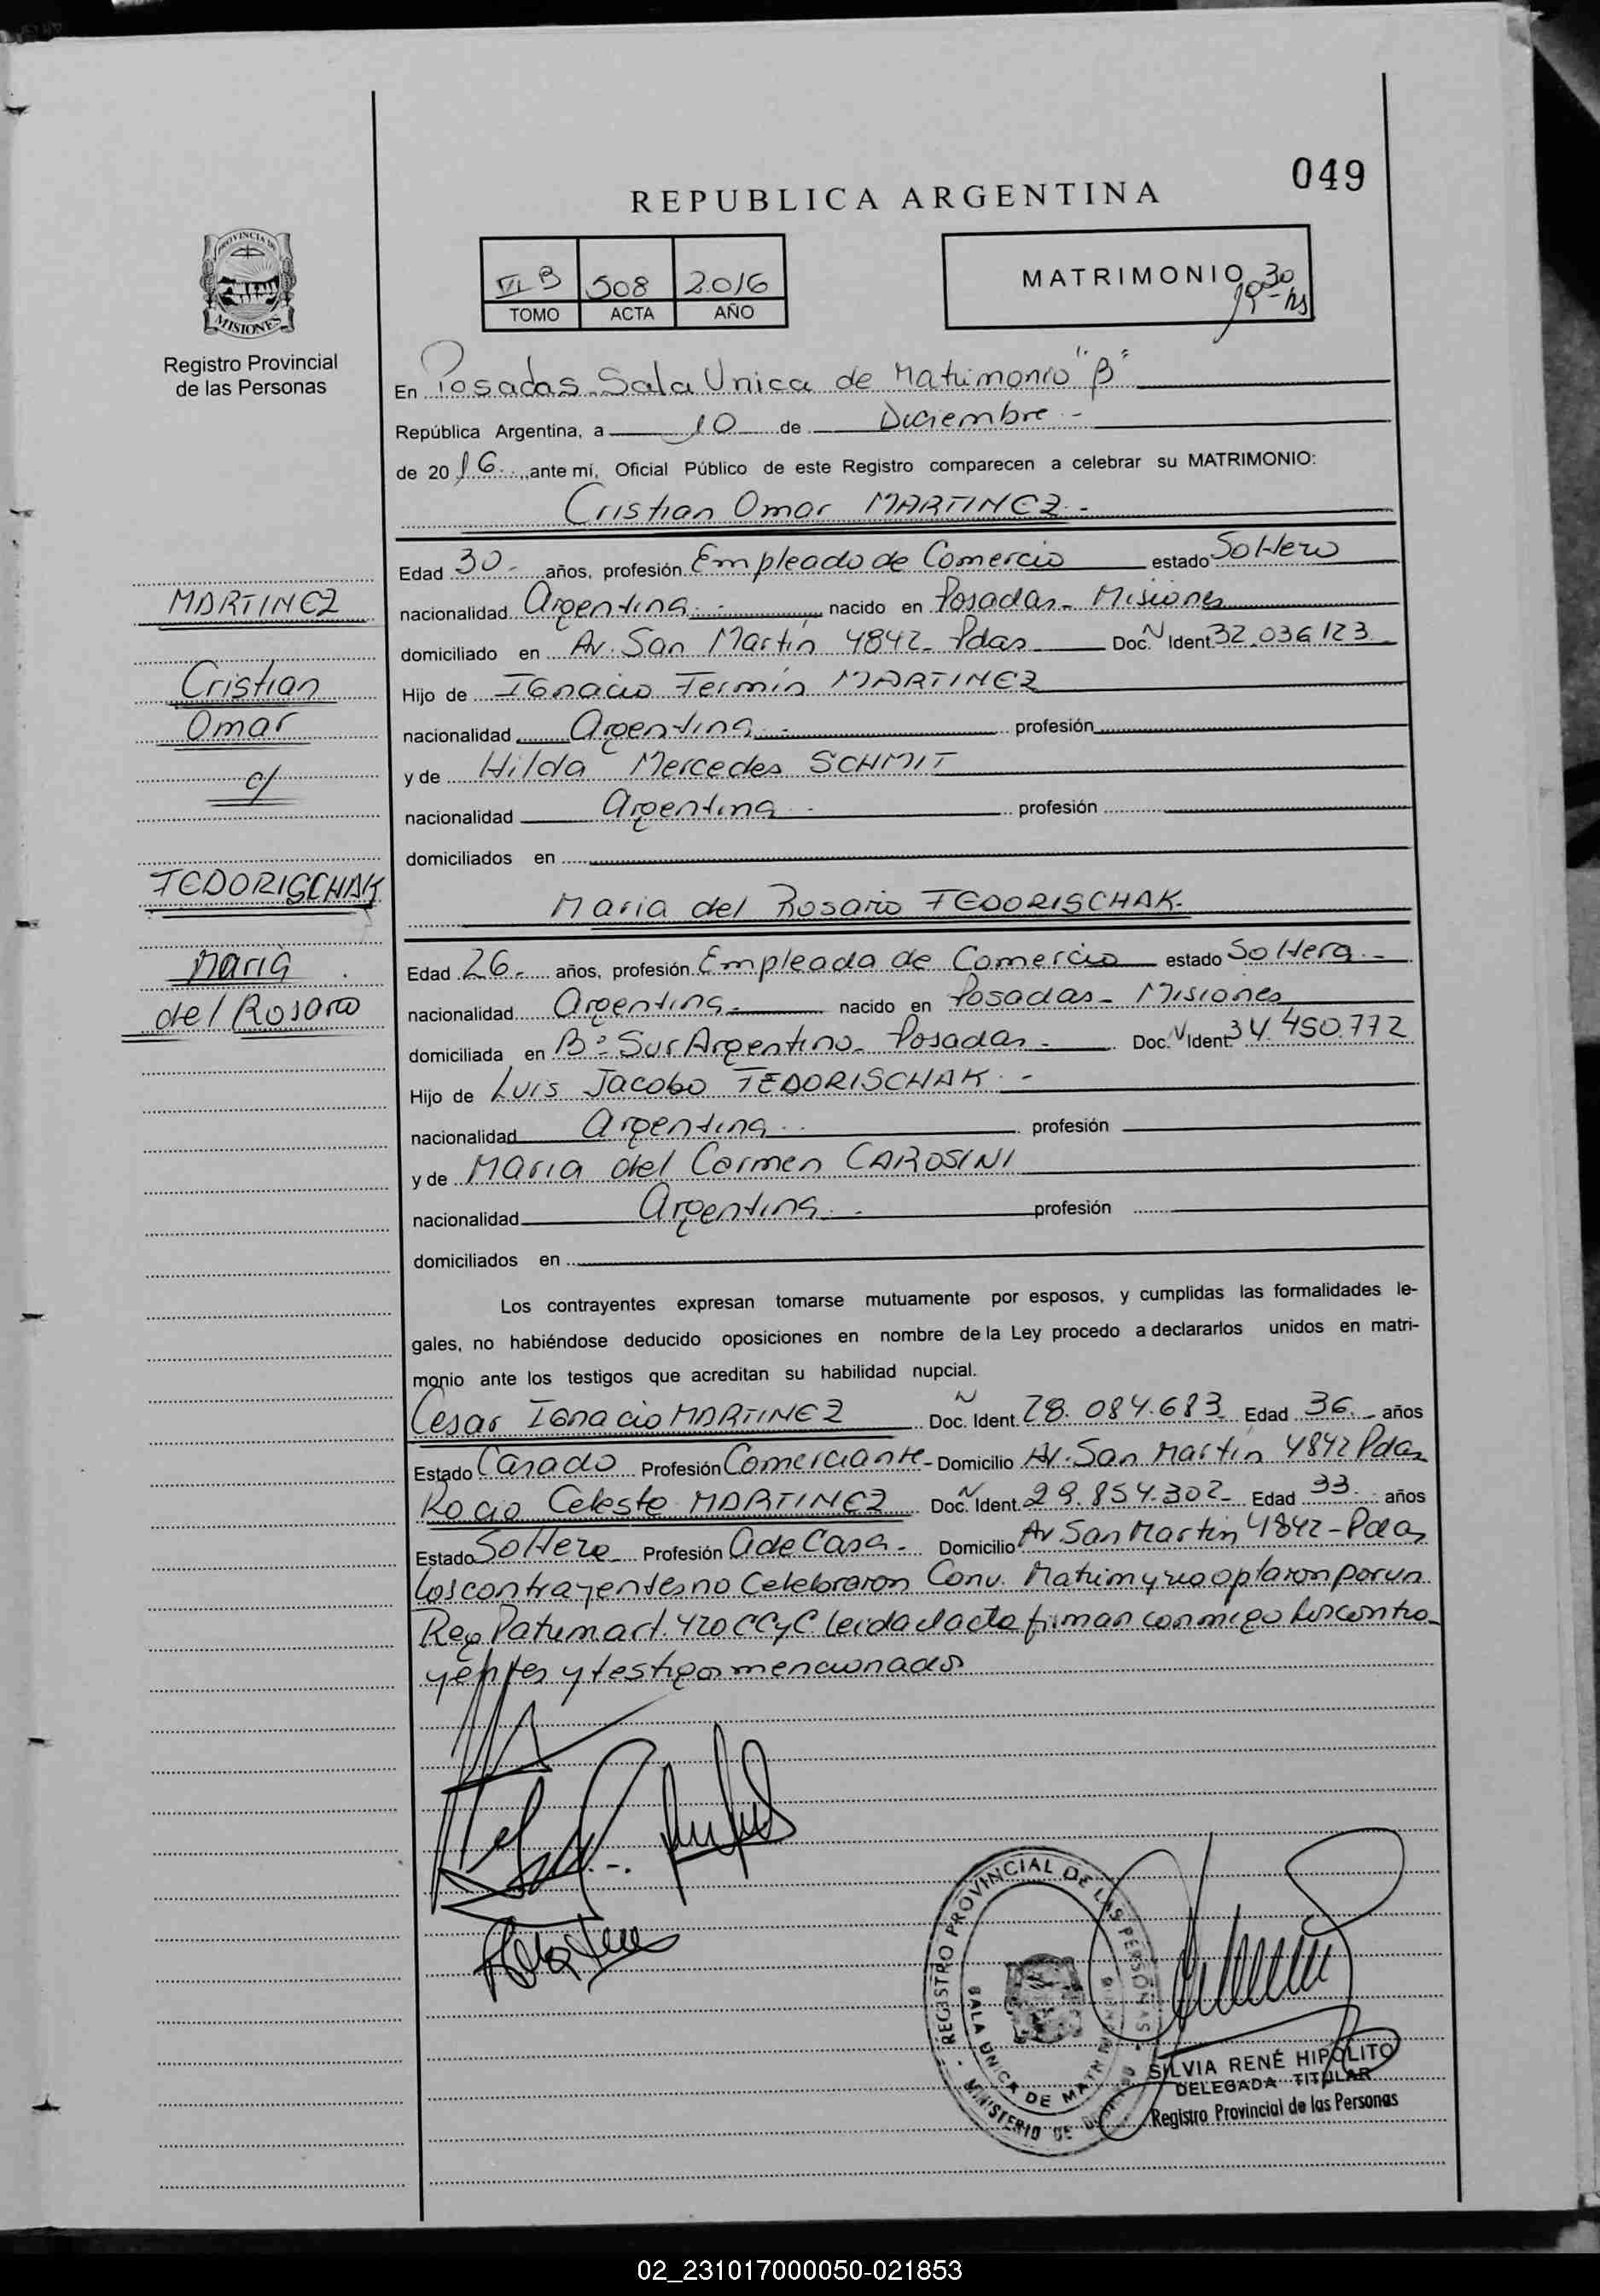 049
REPUBLICA ARGENTINA
PROVINCIA DE
MISIONES
Registro Provincial
de las Personas
VI B 508 2016
TOMO ACTA AÑO
MATRIMONIO
1030 hs
En Posadas - Sala Unica de Matrimonio "B"
República Argentina, a 10 de Diciembre -
de 2016 ante mí, Oficial Público de este Registro comparecen a celebrar su MATRIMONIO:
Cristian Omar MARTINEZ -
Edad 30 - años, profesión Empleado de Comercio estado Soltero
nacionalidad Argentina - nacido en Posadas - Misiones
domiciliado en Av. San Martín 4842 - Pdas Doc. N Ident. 32.036.123
Hijo de Ignacio Fermín MARTINEZ
nacionalidad Argentina - profesión
y de Hilda Mercedes SCHMIT
nacionalidad Argentina - profesión
domiciliados en
Maria del Rosario FEDORISCHAK -
Edad 26 - años, profesión Empleada de Comercio estado Soltera -
nacionalidad Argentina - nacido en Posadas - Misiones
domiciliada en B° Sur Argentino - Posadas - Doc. N Ident. 34.450.772
Hijo de Luis Jacobo FEDORISCHAK -
nacionalidad Argentina - profesión
y de Maria del Carmen CAROSINI
nacionalidad Argentina - profesión
domiciliados en
Los contrayentes expresan tomarse mutuamente por esposos, y cumplidas las formalidades le-
gales, no habiéndose deducido oposiciones en nombre de la Ley procedo a declararlos unidos en matri-
monio ante los testigos que acreditan su habilidad nupcial.
Cesar Ignacio MARTINEZ Doc. N Ident. 28.084.683 Edad 36 - años
Estado Casado Profesión Comerciante - Domicilio Av. San Martín 4842 Pdas
Rocio Celeste MARTINEZ Doc. N Ident. 29.854.302 - Edad 33 años
Estado Soltera Profesión A de Casa - Domicilio Av San Martin 4842 - Pdas
Los contrayentes no Celebraron Conv. Matrim y no optaron por un
Reg Patrim art. 420 CCyC leida el acta firman conmigo los contra-
yentes y testigos mencionados
MARTINEZ
Cristian
Omar
c/
FEDORISCHAK
María
del Rosario
REGISTRO PROVINCIAL DE LAS PERSONAS
SALA ÚNICA DE MATRIMONIO
MINISTERIO DE GOBIERNO
SILVIA RENÉ HIPÓLITO
DELEGADA TITULAR
Registro Provincial de las Personas
02_231017000050-021853